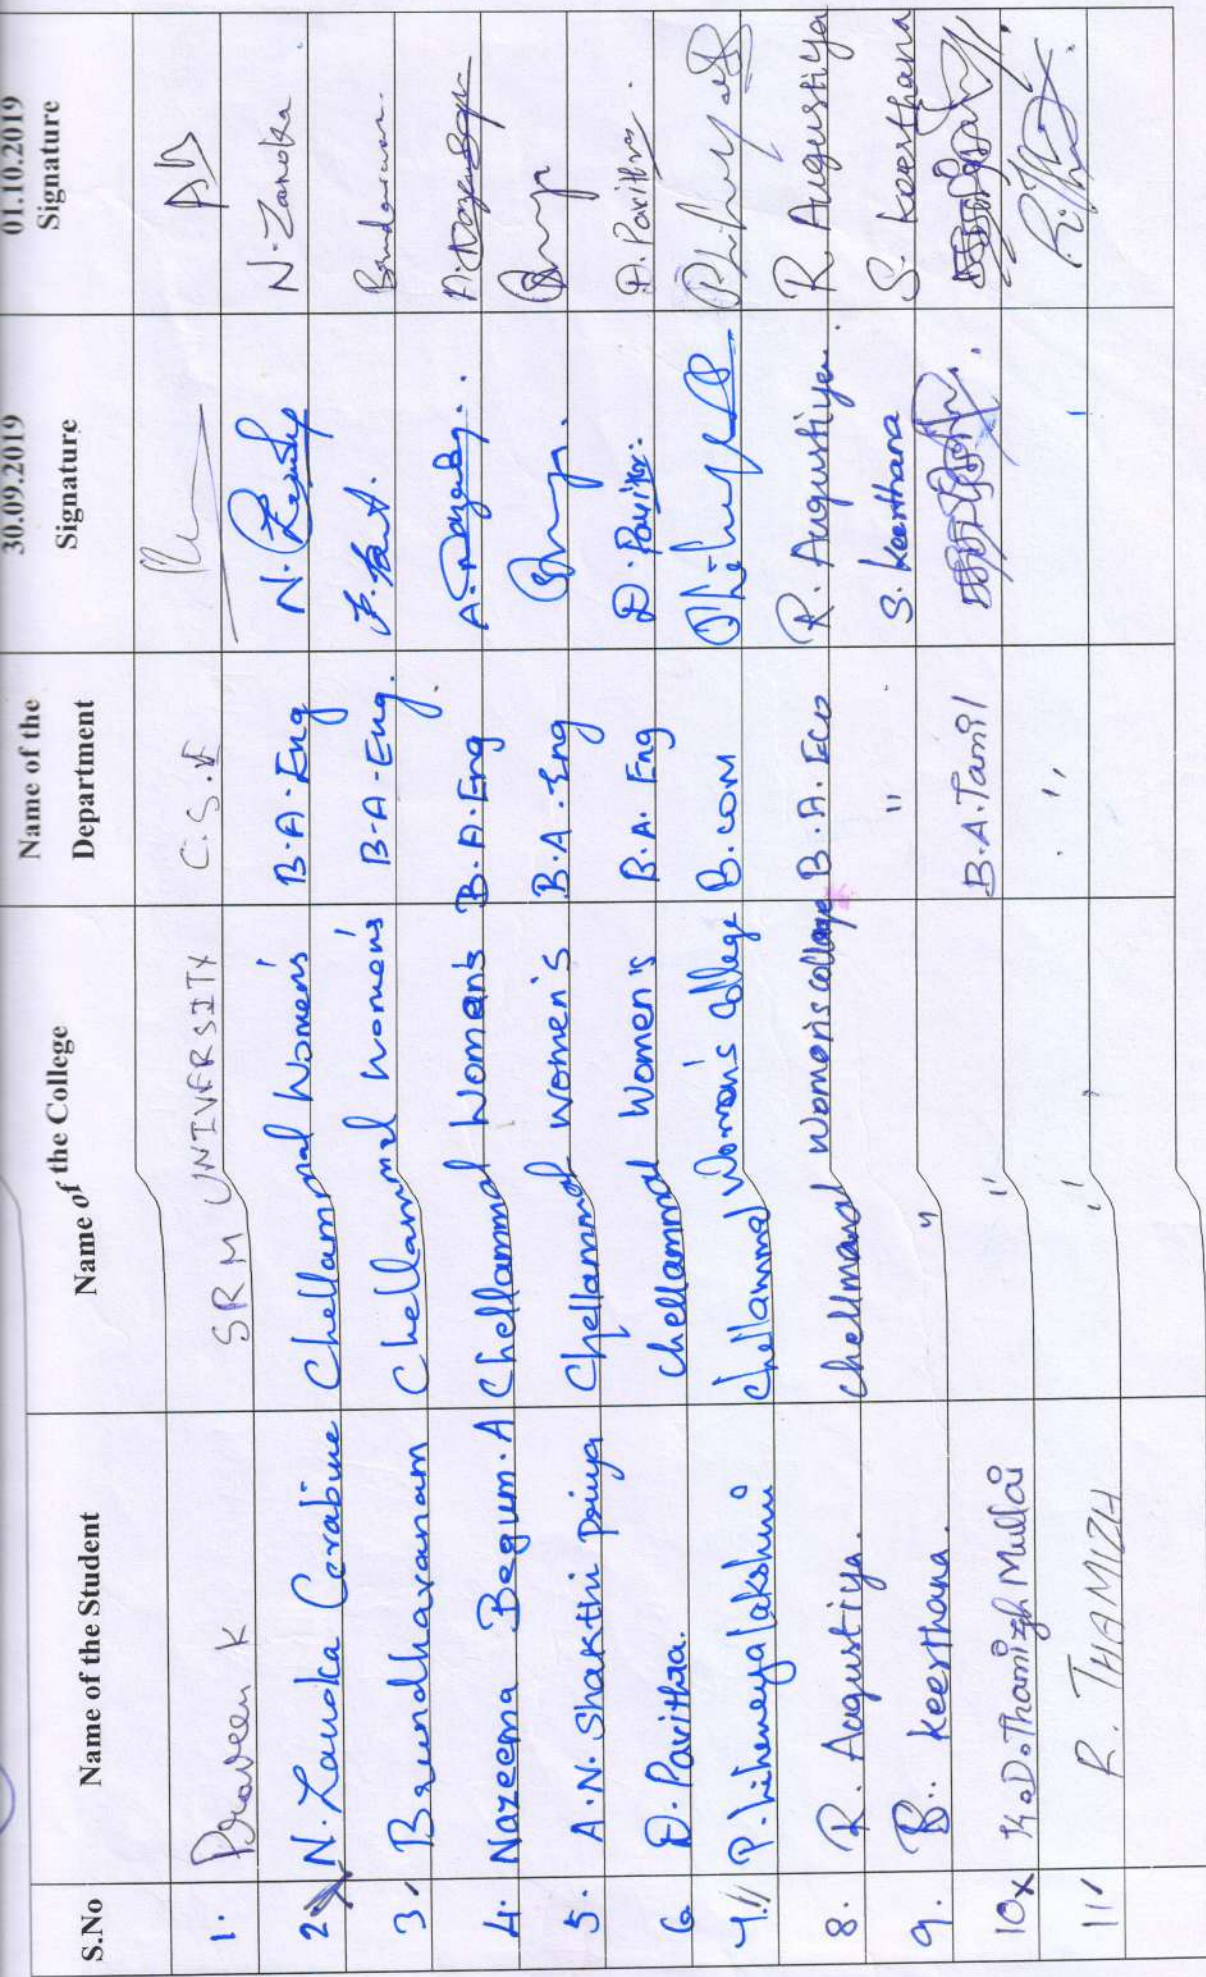 S.No Name of the Student Name of the College Name of the Department 30.09.2019 Signature 01.10.2019 Signature
1. Praveen K SRM UNIVERSITY C.S.E
2 N. Cerabine Chellammal Women's B-A-Eng N. N.
3, Brundharanam Chellammal Women's B-A-Eng.
4. Nazeema Begum.A Chellammal Women's B.A.Eng
5. A.N. Shakthi Priya Chellammal women's B.A.Eng
6. D. Pavithra. Chellammal Women's B.A. Eng D. Pavithr. D. Pavithra.
7. Chellammal Women's College B.com
8. R. Augustiya. Chellmanal women's college B.A. Eco R. Augustiya. R. Augustiya
9. Keerthana. " " S. Keerthana S. Keerthana
10x K.D. Thamizh Mullai " B.A.Tamil
11 R. THAMIZH " "